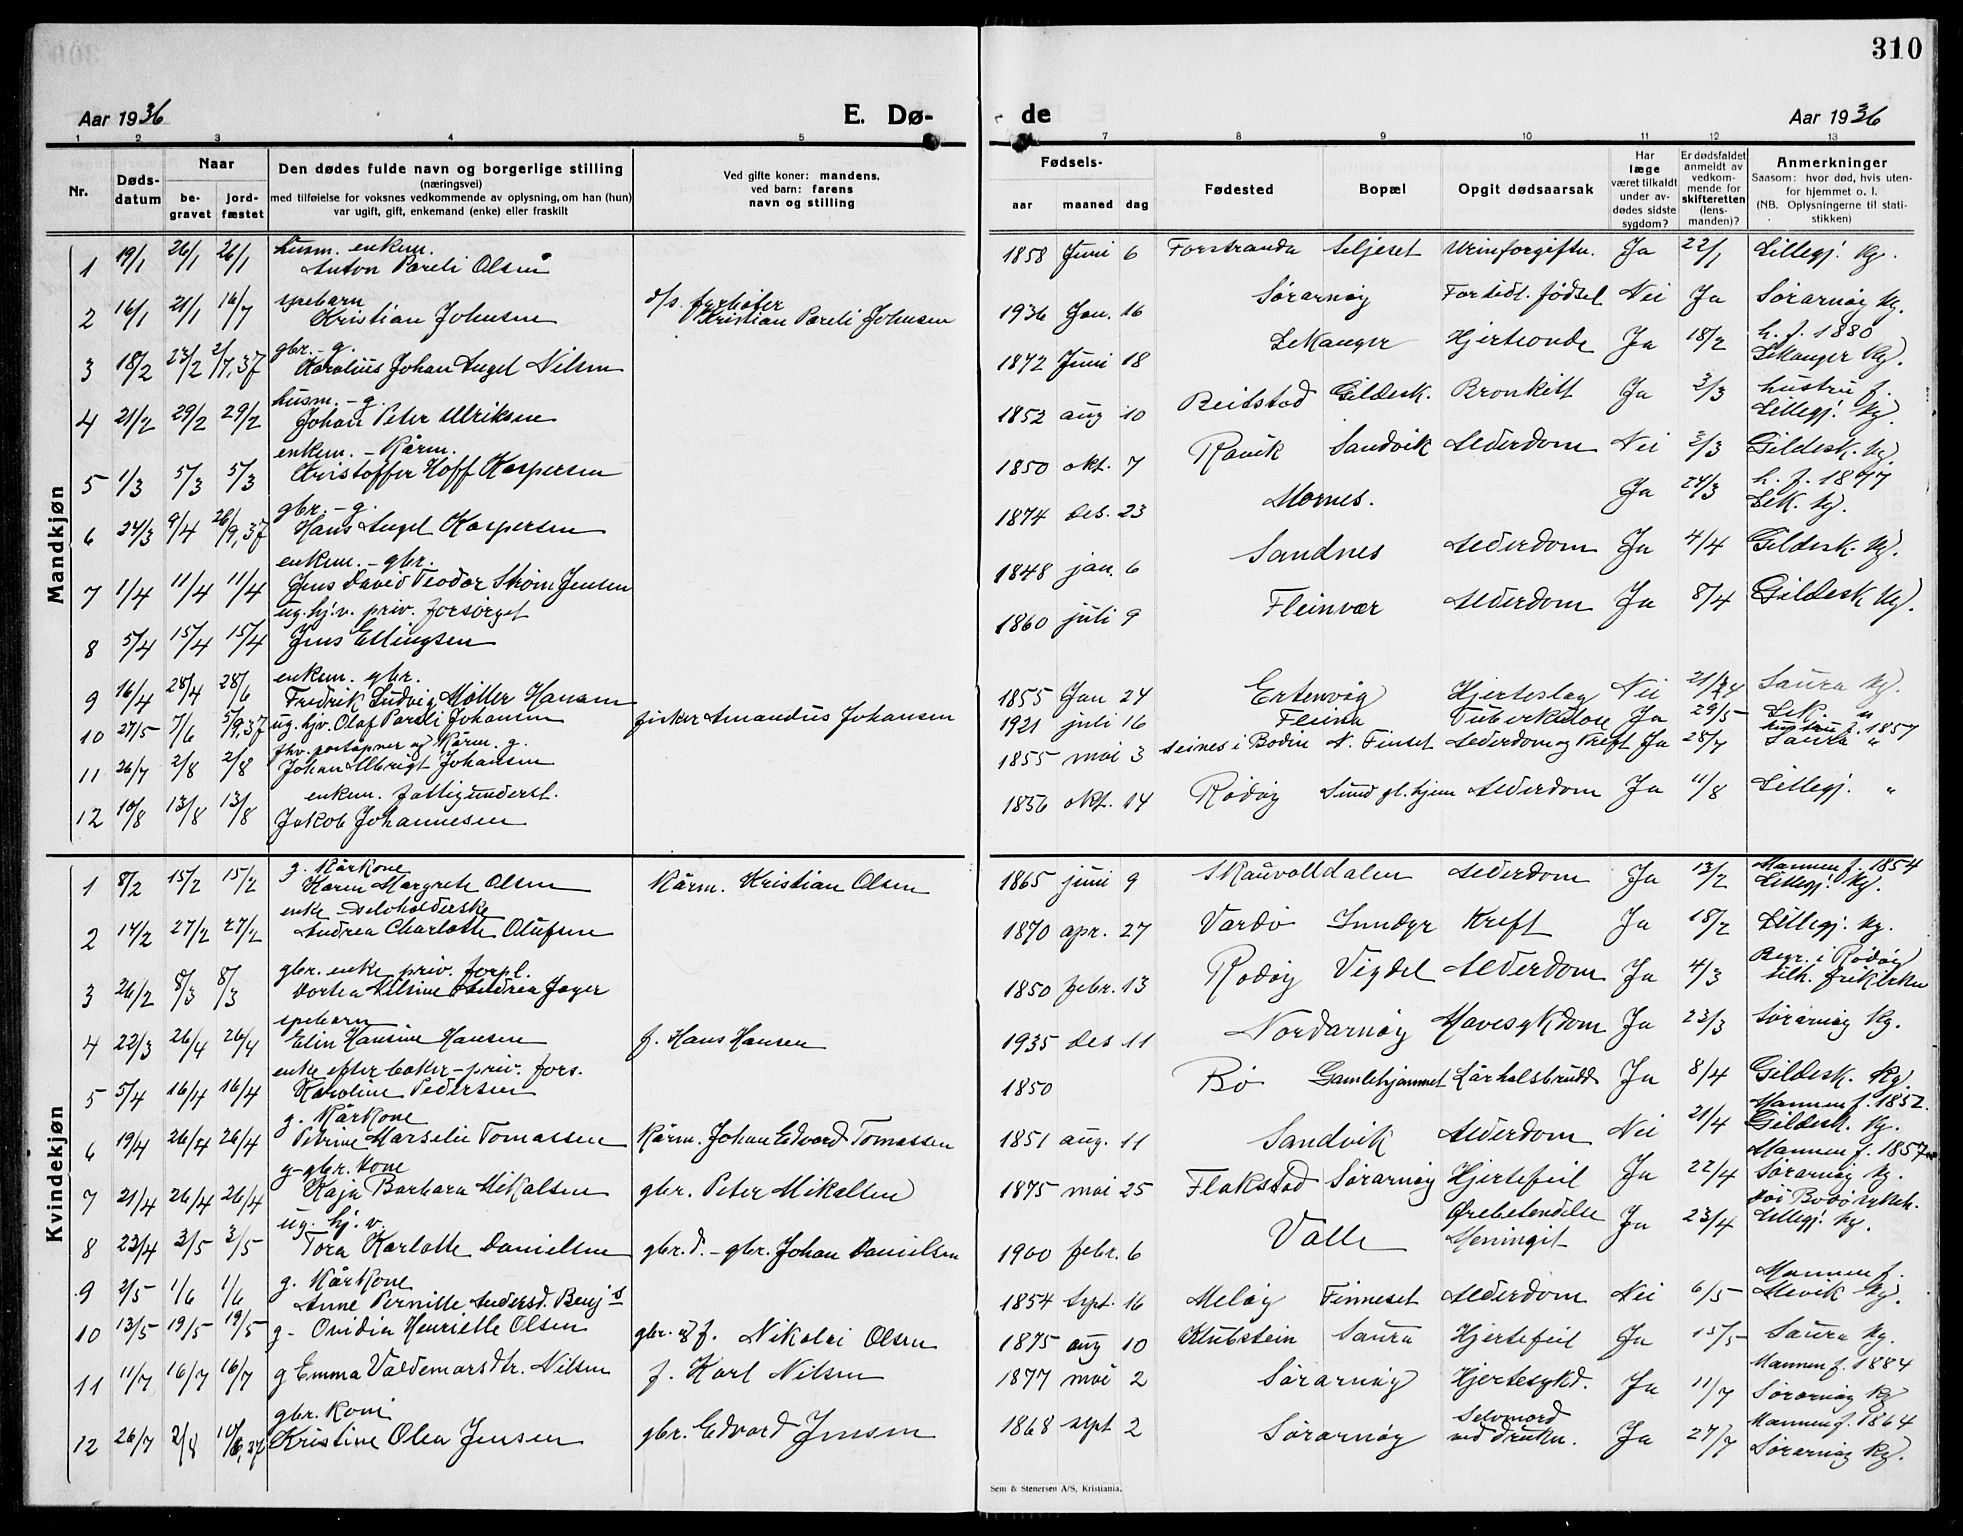 310
Aar 1936
E. Dø-
de
Aar 1936
1 2 3 4 5 7 8 9 10 11 12 13
Nr.
Døds-
datum
Naar
be-
gravet
jord-
fæstet
Den dødes fulde navn og borgerlige stilling
(næringsvei)
med tilføielse for voksnes vedkommende av oplysning, om han (hun)
var ugift, gift, enkemand (enke) eller fraskilt
Ved gifte koner: mandens,
ved barn: farens
navn og stilling
Fødsels-
aar maaned dag
Fødested
Bopæl
Opgit dødsaarsak
Har
læge
været tilkaldt
under av-
dødes sidste
sygdom?
Er dødsfaldet
anmeldt av
vedkom-
mende for
skifteretten
(lens-
manden)?
Anmerkninger
Saasom: hvor død, hvis uten-
for hjemmet o. l.
(NB. Oplysningerne til stati-
stikken)
Mandkjøn
husm. enkem.
1 19/1 26/1 26/1 Anton Pareli Olsen 1858 Juni 6 Forstranda Seljeset Urinforgiftn. Ja 22/1 Lillegj. kg.
spebarn
2 16/1 21/1 16/7 Kristian Johnsen d/s. fyrbøter Kristian Pareli Johnsen 1936 Jan. 16 Sørarnøy For tidl. fødsel Nei Ja Sørarnøy kg.
gbr. - g. h. f. 1880
3 18/2 23/2 2/7, 37 Karolius Johan Angel Nilsen 1872 Juni 18 Lekanger Hjerteonde Ja 18/2 Lekanger kg.
husm. - g. hustru f.
4 21/2 29/2 29/2 Johan Peter Ulriksen 1852 aug 10 Beitstad Gildesk. Bronkitt Ja 3/3 Lillegj. kg.
enkem. - Kårm.
5 1/3 5/3 5/3 Kristoffer Hoff Kaspersen 1850 okt. 7 Ravik Sandvik Alderdom Nei 2/3 Gildesk. kg.
gbr. - g. h. f. 1877
6 24/3 9/4 26/9, 37 Hans Angel Kaspersen 1874 des. 23 Mornes. Ja 24/3 Lek. kg.
enkem. - gbr.
7 1/4 11/4 11/4 Jens David Teodor Strøm Jensen 1848 jan. 6 Sandnes Alderdom Ja 4/4 Gildesk. kg.
ug. hj.v. priv. forsørget
8 5/4 15/4 15/4 Jens Ellingsen 1860 juli 9 Fleinvær Alderdom Ja 8/4 Gildesk kg.
enkem. gbr.
9 16/4 28/4 28/6 Fredrik Ludvig Møller Hansen 1855 Jan 24 Ertenvåg Hjerteslag Nei 21/4 Saura kg.
10 27/5 7/6 5/9, 37 ug. hjv. Olaf Pareli Johansen fisker Amandus Johansen 1921 juli 16 Fleina Tuberkulose Ja 29/5 Lek. "
fhv. poståpner og Kårm. g. hustru f. 1857
11 26/7 2/8 2/8 Johan Albrigt Johansen 1855 mai 3 Seines i Bodin N. Finset Alderdom og Kreft Ja 28/7 Saura "
enkem. fattigunderst.
12 10/8 13/8 13/8 Jakob Johannesen 1856 okt. 14 Rødøy Sund gl. hjem Alderdom Ja 11/8 Lillegj. "
Kvindekjøn
g. Kårkone Mannen f. 1854
1 8/2 15/2 15/2 Karen Margrete Olsen Kårm. Kristian Olsen 1865 juni 9 Skauvolldalen Alderdom Ja 13/2 Lillegj. kg.
enke - selvholderske
2 14/2 27/2 27/2 Andrea Charlotte Olufsen 1870 apr. 27 Vardø Inndyr Kreft Ja 18/2 Lillegj. kg.
gbr. enke priv. forpl. Begr. i Rødøy
3 26/2 8/3 8/3 Dortea Nilsine Andrea Jager 1850 febr. 13 Rødøy Vigdel Alderdom Ja 4/3 tilh. frikirken
spebarn
4 22/3 26/4 26/4 Elin Hansine Hansen f. Hans Hansen 1935 des 11 Nordarnøy Mavesykdom Ja 23/3 Sørarnøy kg.
enke efter baker - priv. fors.
5 5/4 16/4 16/4 Karoline Pedersen 1850 Bø Gamlehjemmet Lårhalsbrudd Ja 8/4 Gildesk. kg.
g. Kårkone Mannen f. 1852.
6 19/4 26/4 26/4 Petrine Marselie Tomassen Kårm. Johan Edvard Tomassen 1851 aug. 11 Sandvik Alderdom Nei 21/4 Gildesk. kg.
g - gbr. kone Mannen f. 1857
7 21/4 26/4 26/4 Kaja Barbara Mikalsen gbr. Peter Mikalsen 1875 mai 25 Flakstad Sørarnøy Hjertefeil Ja 22/4 Sørarnøy kg.
ug. hj. v. Ørebetendelse død Bodø sykeh.
8 23/4 3/5 3/5 Tora Karlotte Danielsen gbr. d. - gbr. Johan Danielsen 1900 febr. 6 Valle Meningit Ja 23/4 Lillegj. kg.
g. Kårkone Mannen f.
9 2/5 1/6 1/6 Anne Pernille Andersd. Benjs 1854 sept. 16 Meløy Finneset Alderdom Nei 6/5 Mevik kg.
10 13/5 19/5 19/5 g - Ovidia Henrielle Olsen gbr. & f. Nikolai Olsen 1875 aug 10 Klubstein Saura Hjertefeil Ja 15/5 Saura kg.
Mannen f. 1884
11 11/7 16/7 16/7 g Emma Valdemarsdtr. Nilsen f. Karl Nilsen 1877 mai 2 Sørarnøy Hjertesykd. Ja 11/7 Sørarnøy kg
gbr. kone Selvmord Mannen f. 1864
12 26/7 2/8 10/6, 37 Kristine Olea Jensen gbr. Edvard Jensen 1868 sept 2 Sørarnøy ved drukn. Ja 27/7 Sørarnøy kg.
Sem & Stenersen A/S, Kristiania.